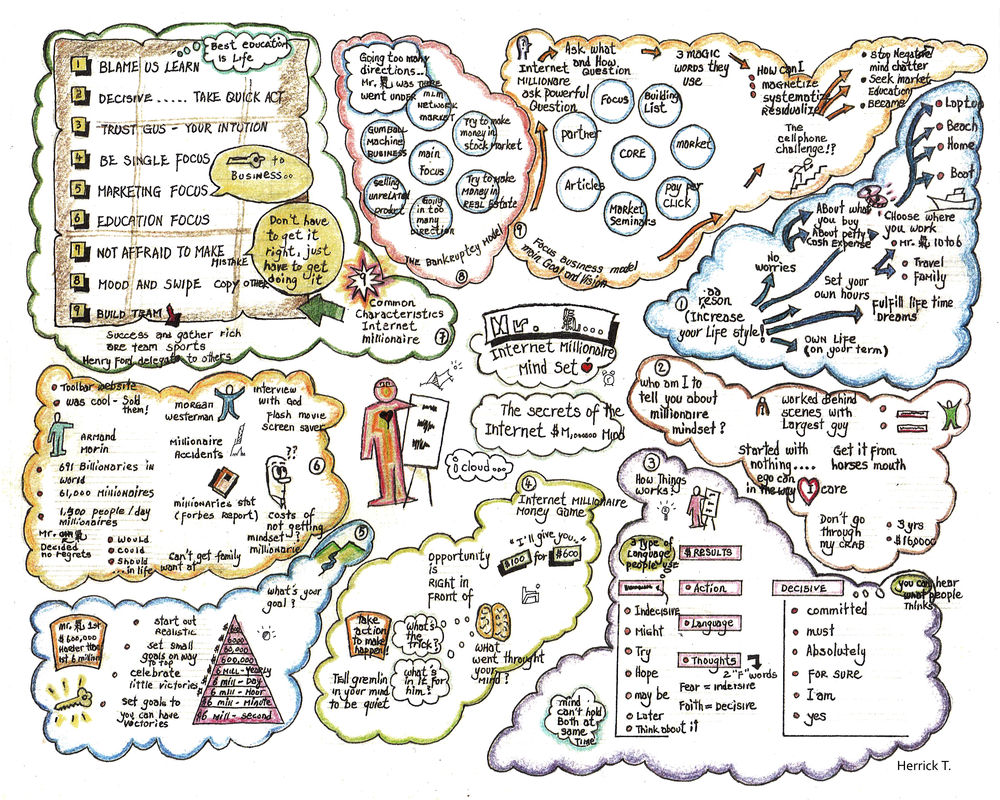 Mr. 氣....
Internet Millionaire
Mind Set
The secrets of the
Internet $M,000000 Mind
i cloud...
1
reson
(Increase
your Life style!
No
worries
About what
you buy
About petty
cash Expense
Set your
own hours
OWN Life
(on your term)
Fulfill life time
Dreams
Choose where
you work
Mr. 氣 10 to 6
Travel
Family
Laptop
Beach
Home
Boat
2
who am I to
tell you about
millionaire
mindset?
worked Behind
scenes with
Largest guy
Started with
nothing....
ego can
in the way
Get it from
horses mouth
I care
Don't go
through
my CRAB
3 yrs
$16,000
3
How Things
Works?
a Type of
Language
people use
$ RESULTS
Action
Language
Thoughts
2 "F" words
Fear = indersire
Faith = Decisive
Indecisive
Might
Try
Hope
may be
Later
Think about it
mind
can't hold
Both at
same
Time
DECISIVE
you can hear
what people
Thinks
committed
must
Absolutely
FOR SURE
I am
yes
4
Internet MILLIONAIRE
Money Game
"I'll give you..."
$100 for $600
Opportunity
is
RIGHT in
Front of
Take
action
To make
happen!
What's
the
Trick?
what's
in it for
him?
Tell gremlin
in your mind
to be quiet
What
went throught
your
Mind?
5
what's your
goal?
Mr. 氣 1st
$600,000
Harder than
1st 6 million
start out
Realistic
set small
goals on way
to top
celebrate
little victories
Set goals to
you can have
victories
$
600
6,000
60,000
600,000
6 Mill - Yearly
6 mill - Day
6 mill - Hour
$6 mill - Minute
$6 mill - second
6
Toolbar website
was cool - Sold
them!
morgan
westerman
interview
with God
Flash movie
screen saver
ARMAND
Morin
Millionaire
Accidents
691 Billionaries in
World
61,000 Millionaires
1,900 people/day
millionaires
millionaries stat
(Forbes Report)
??
costs of
not getting
mindset?
millionarie
Mr. 氣
Decided
no regrets
Would
Could
Should
...in life
Can't get family
want at
7
Common
Characteristics
Internet
millionaire
Best education
is Life
1 BLAME US LEARN
2 DECISIVE ..... TAKE QUICK ACT
3 TRUST GUS - YOUR INTUTION
4 BE SINGLE FOCUS
to
BUSINESS..
5 MARKETING FOCUS
6 EDUCATION FOCUS
7 NOT AFFRAID TO MAKE
MISTAKE
8 MOOD AND SWIPE COPY OTHER
9 BUILD TEAM
Don't have
to get it
right, just
have to get
doing it
Success and gather rich
are team sports
Henry Ford delegate to others
8
The Bankruptcy Model
Going too many
directions...
Mr. 氣 was there
went under
MLM
NETWORK
MARKET
GUMBALL
Machine
BUSINESS
Try to make
money in
stock Market
main
Focus
selling
unrelated
product
Going
in too
many
DIRECTION
Try to make
MONEY in
REAL Estate
9
Focus business model
main Goal and Vision
Internet
MILLIONARE
ask powerful
Question
Ask what
and How
Question
3 MAGIC
words they
use
HOW CAN I
MAGNETIZE
systematize
Residualize
Stop Negative
mind chatter
Seek market
Education
Became
The
cellphone
challenge!?
FOCUS
Building
List
partner
CORE
market
Articles
Market
Seminars
pay per
CLICK
Herrick T.